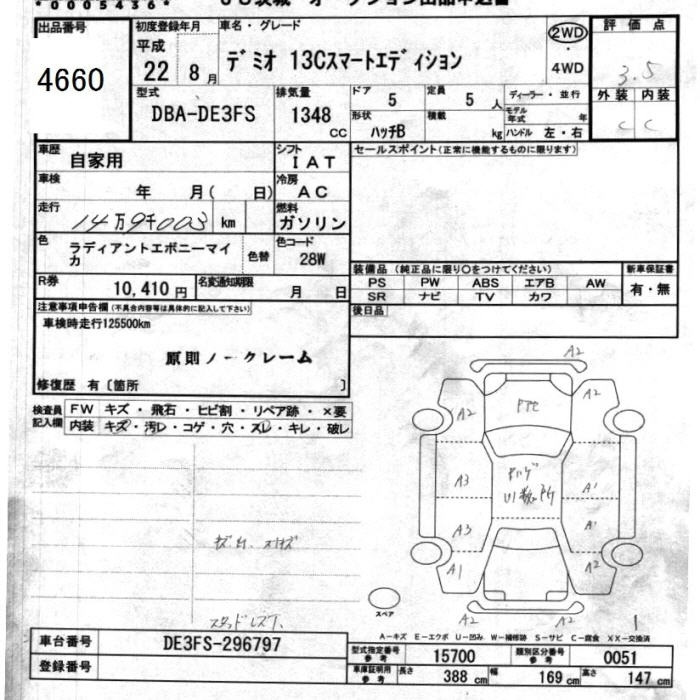 *0005436*
出品番号
4660
初度登録年月
平成
22年 8月
車名・グレード
デミオ 13Cスマートエディション
2WD
4WD
評価点
3.5
外装 内装
C C
型式
DBA-DE3FS
排気量
1348 CC
ドア
5
定員
5 人
形状
ハッチB
積載
kg
ディーラー・並行
モデル年式 年
ハンドル 左・右
車歴
自家用
シフト
IAT
車検
年 月( 日)
冷房
AC
走行
14万9千003 km
燃料
ガソリン
色
ラディアントエボニーマイカ
色替
色コード
28W
R券
10,410円
名変通知期限
月 日
セールスポイント(正常に機能するものに限ります)
装備品 (純正品に限り○をつけてください)
PS PW ABS エアB AW
SR ナビ TV カワ
新車保証書
有・無
後日品
注意事項申告欄(不具合内容等は具体的に記入して下さい)
車検時走行125500km
原則ノークレーム
修復歴 有〔箇所 〕
検査員記入欄
FW キズ・飛石・ヒビ割・リペア跡・×要
内装 キズ・汚レ・コゲ・穴・スレ・キレ・破レ
A2
A2
A2
A3
A1
A3
A1
A1
A2
A2
A2
スペア
A-キズ E-エクボ U-凹み W-補修跡 S-サビ C-腐食 XX-交換済
車台番号
DE3FS-296797
登録番号
型式指定番号 参考
15700
類別区分番号 参考
0051
車庫証明用 参考
長さ 388 cm
幅 169 cm
高さ 147 cm